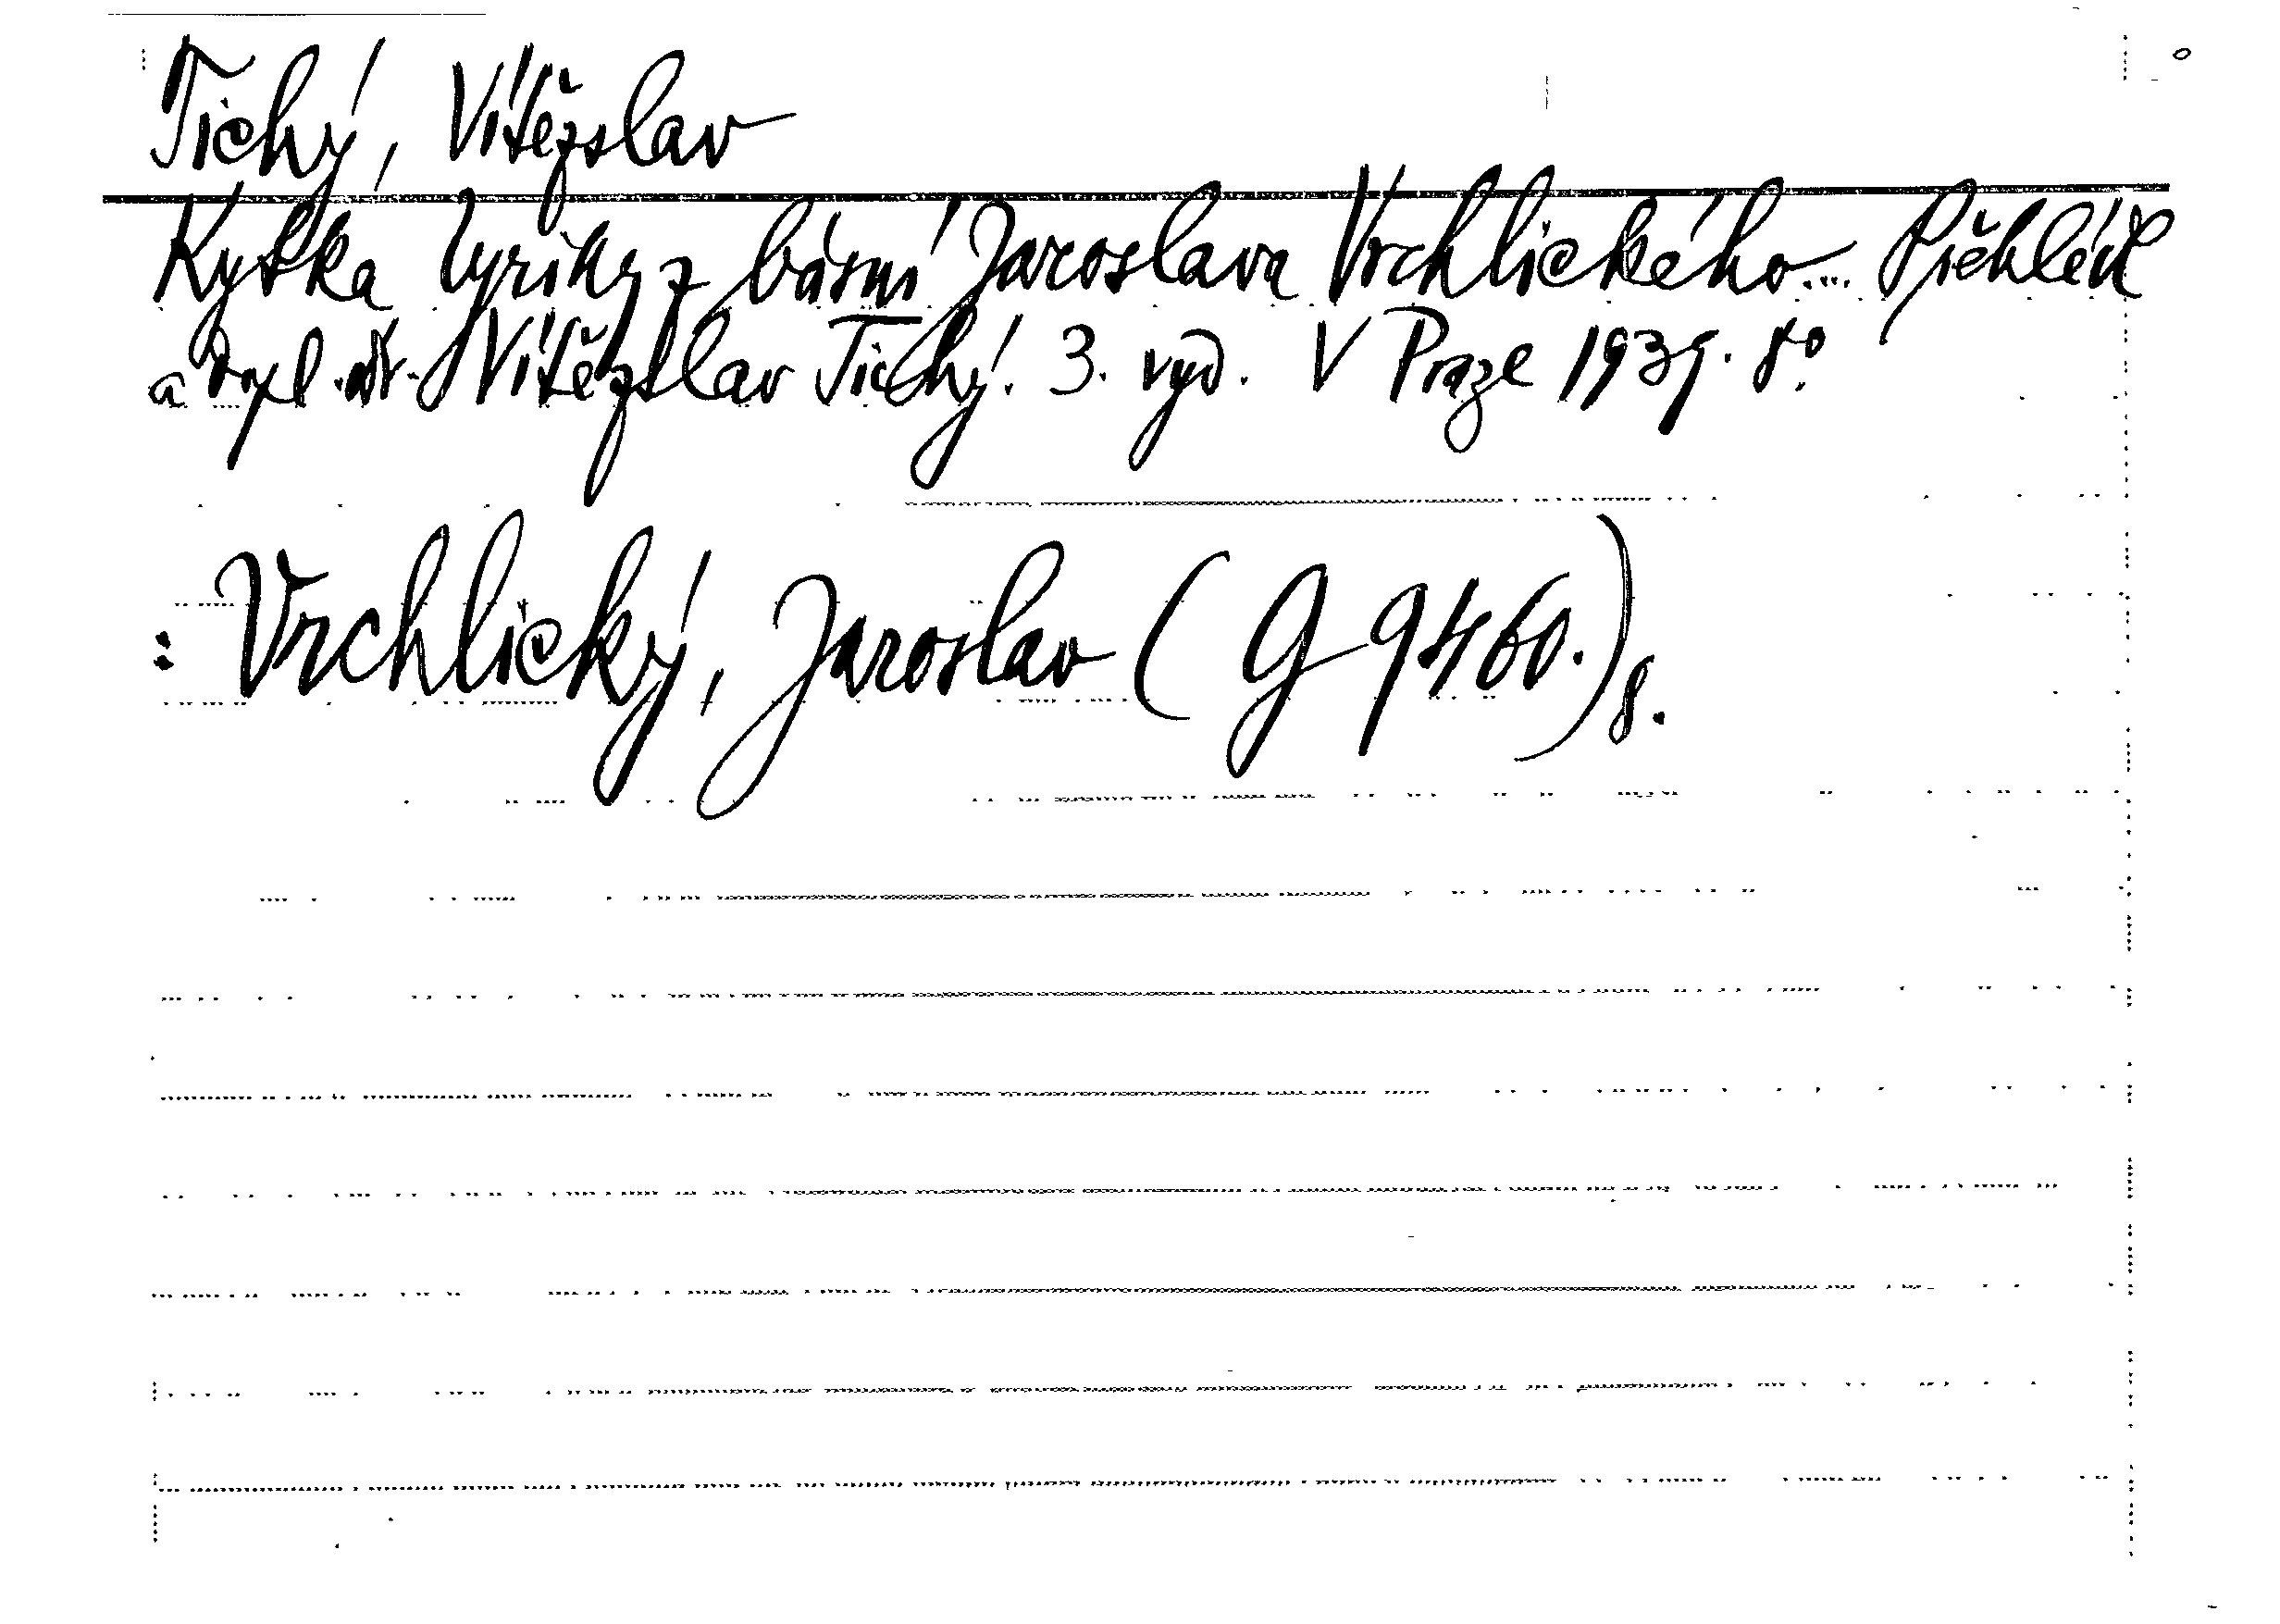 Tichý, Vítězslav
Kytka lyriky z básní Jaroslava Vrchlického... Přehlédl
a dopl. dr. Vítězslav Tichý. 3. vyd. V Praze 1939. 8°.
: Vrchlický, Jaroslav (G 9460.) 8.